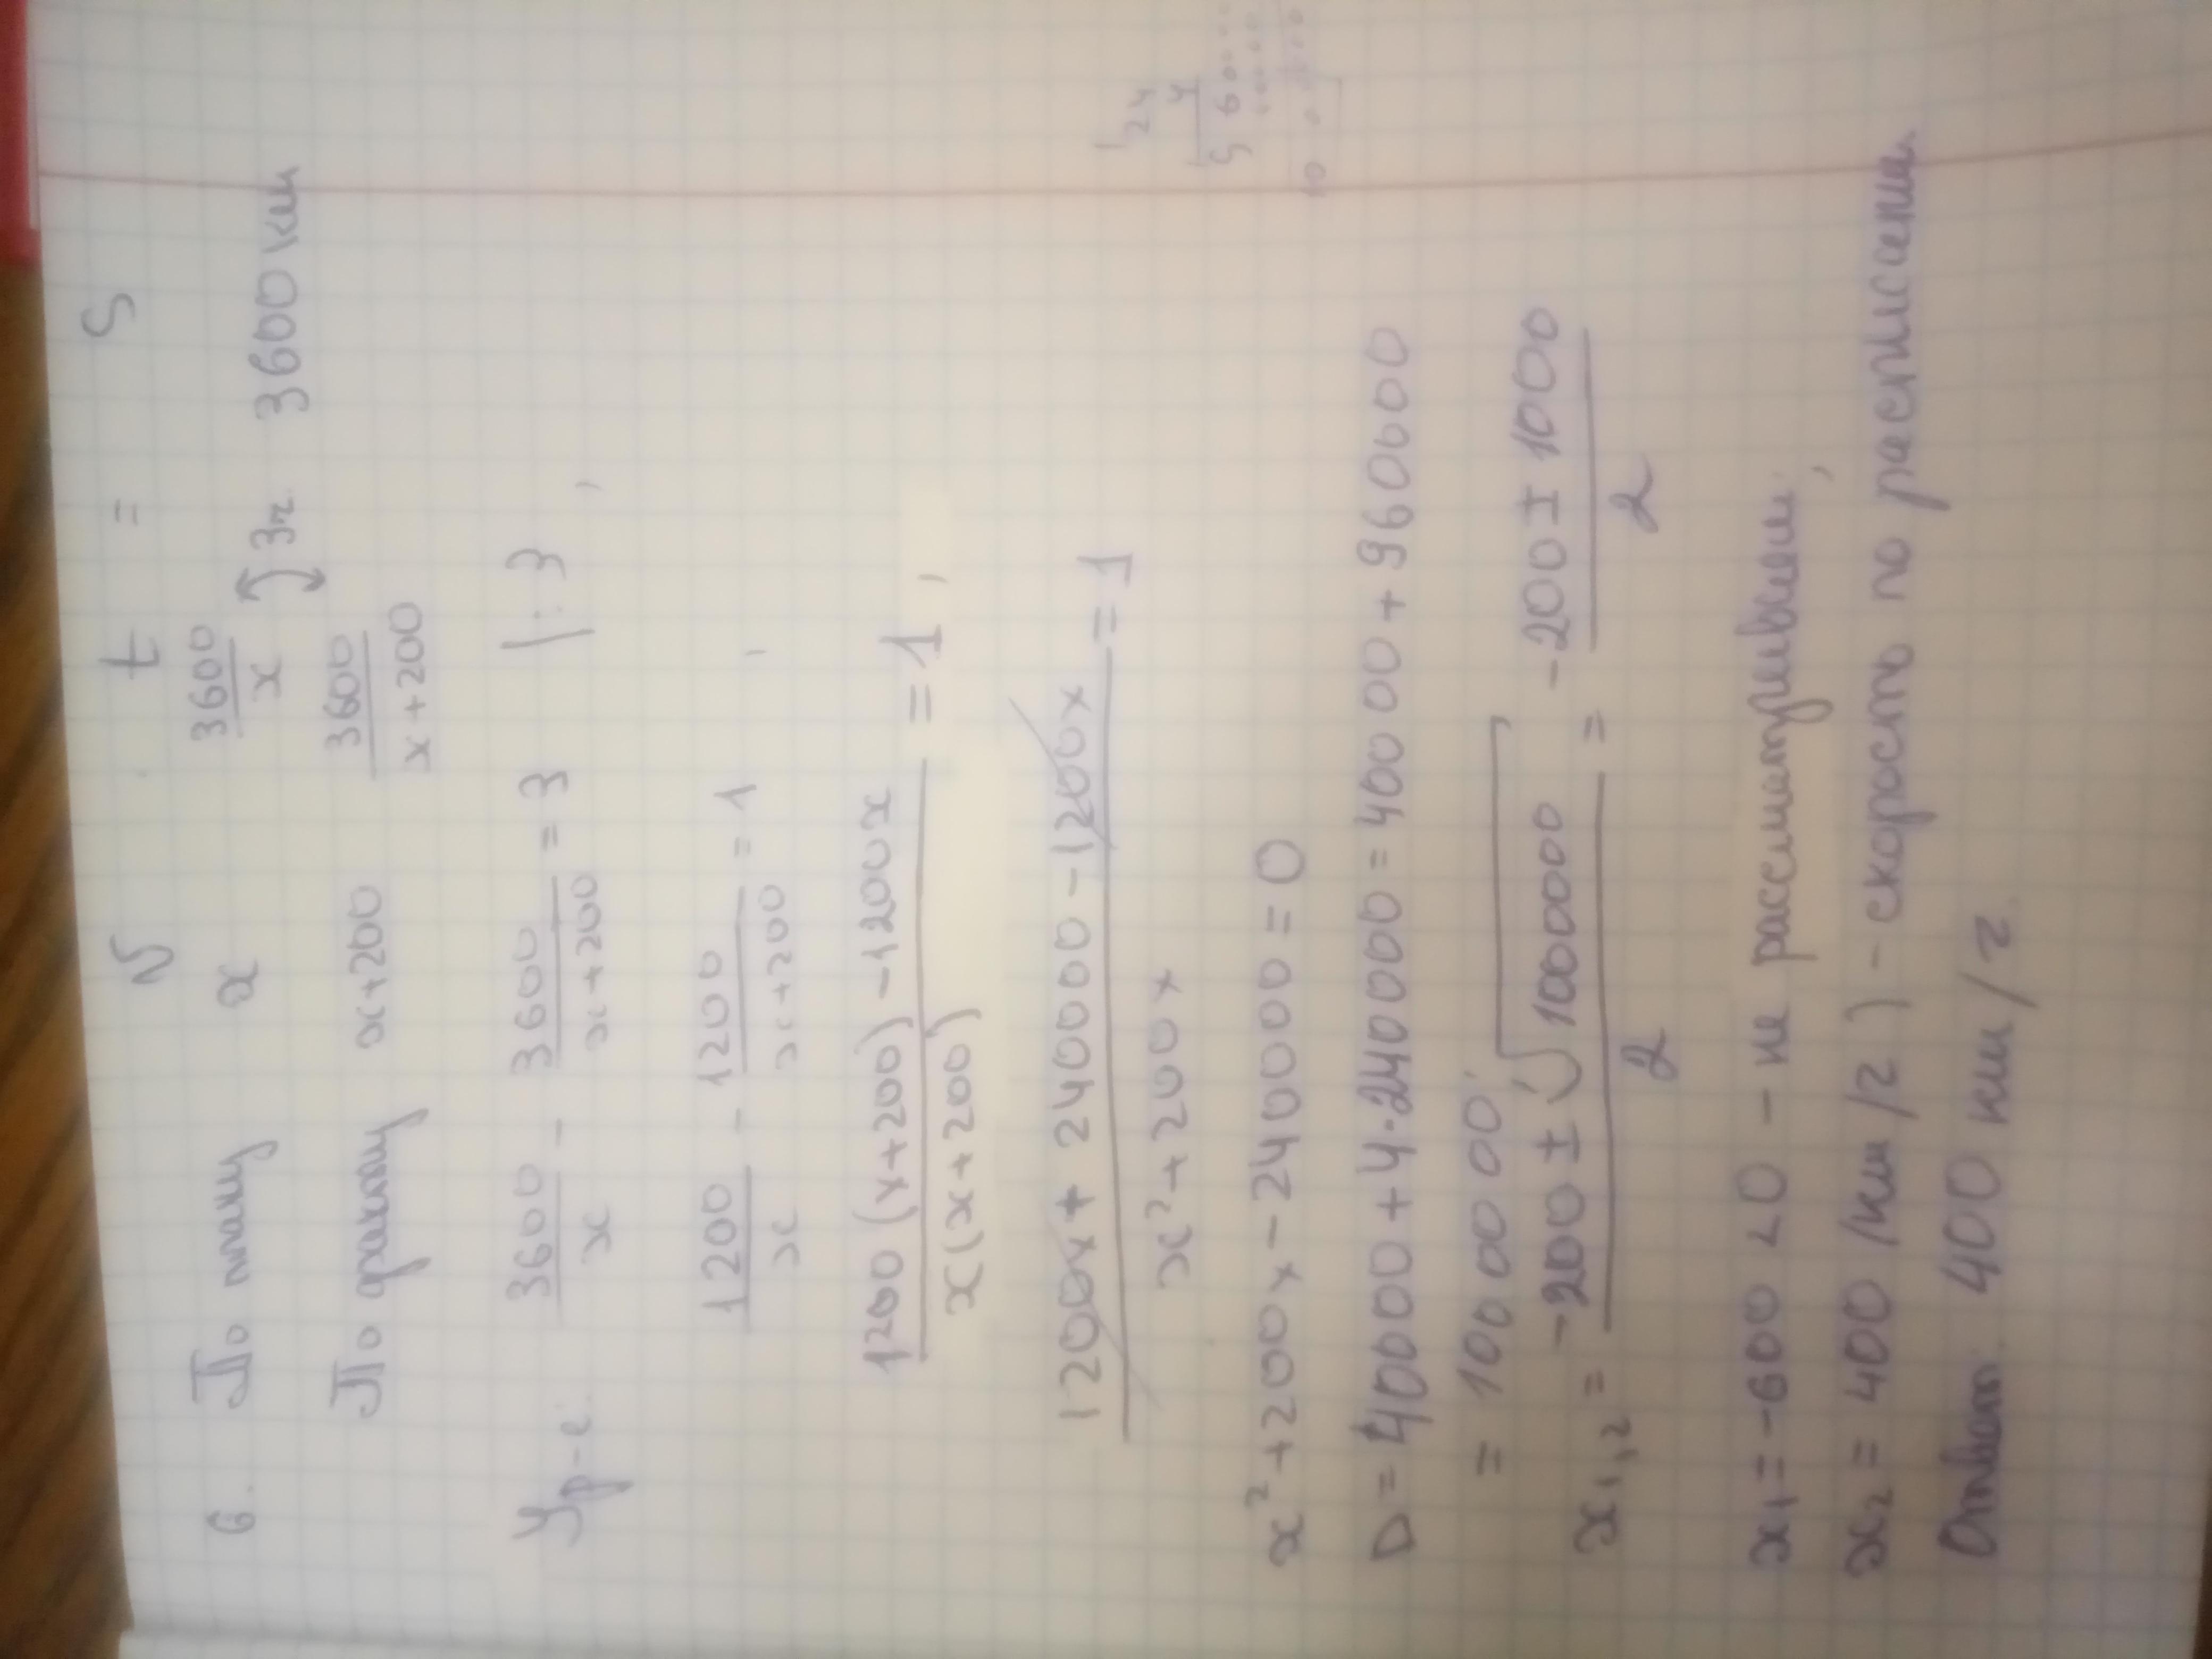 v t = S
6. По плану x 3600/x 3ч 3600 км
По факту x+200 3600/x+200
Ур-е: 3600/x - 3600/x+200 = 3 |:3,
1200/x - 1200/x+200 = 1,
1200(x+200)-1200x/x(x+200) = 1,
1200x+240000-1200x/x²+200x = 1
x²+200x-240000=0
D=40000+4·240000=40000+960000
=1000000,
x1,2 = -200±√1000000/2 = -200±1000/2
x1=-600<0 - не рассматриваем,
x2=400 (км/ч) - скорость по расписанию
Ответ: 400 км/ч
24
4